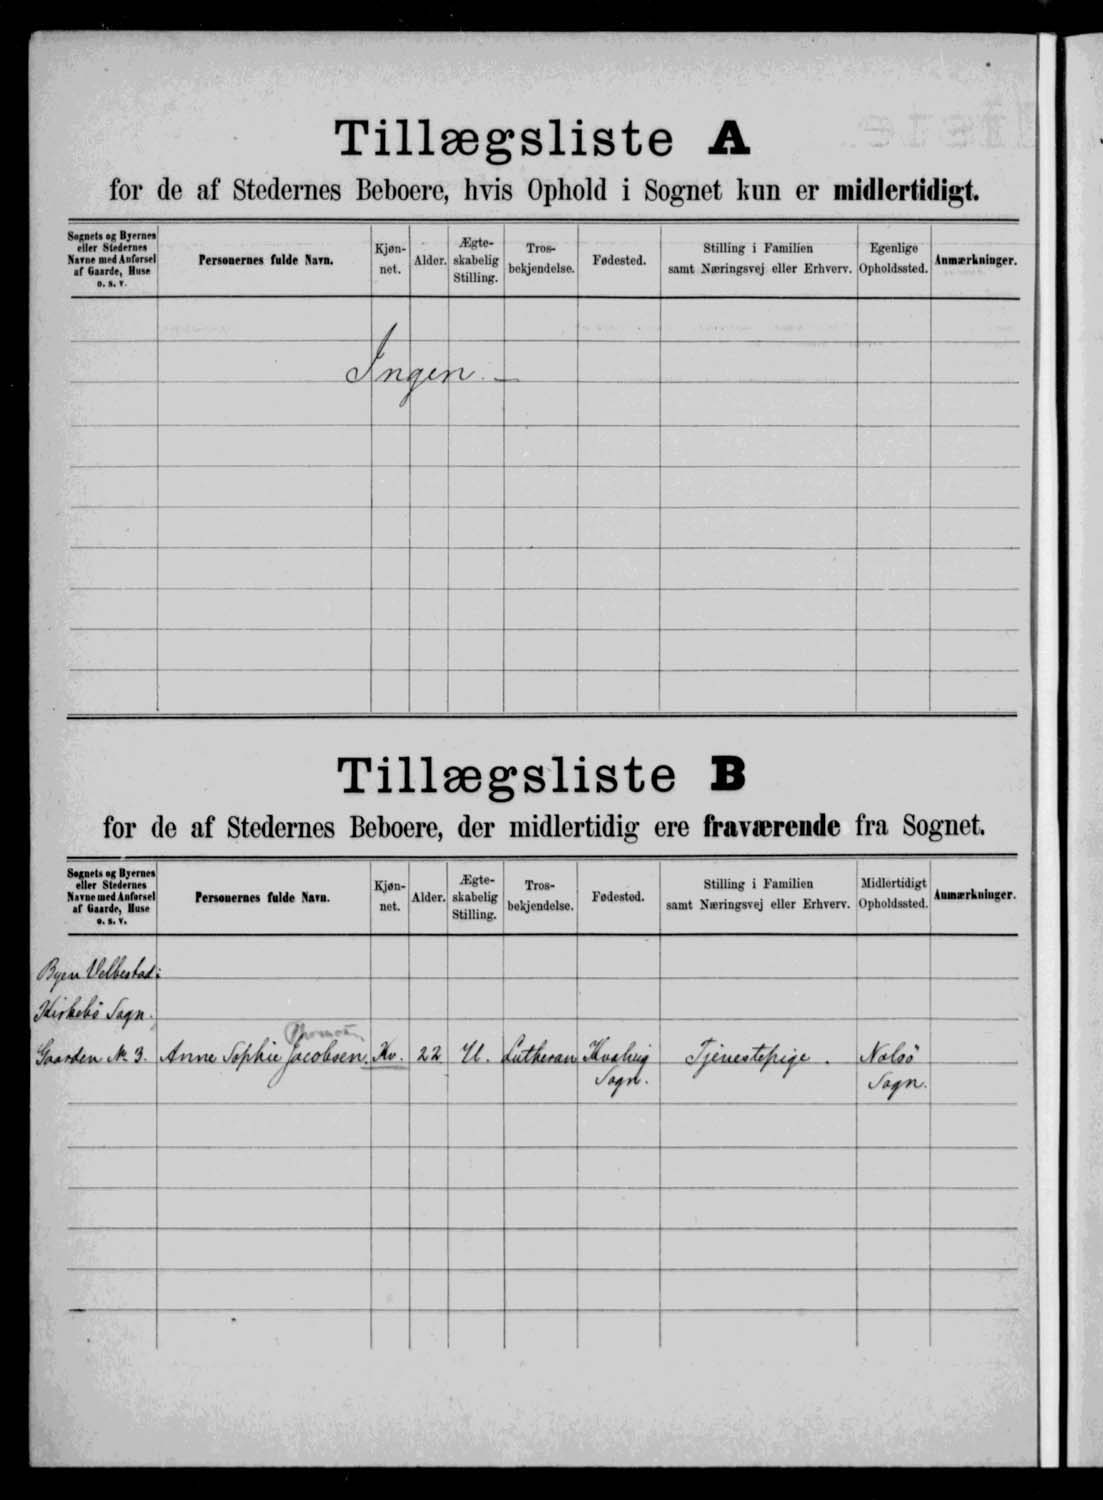 Tillægsliste A
for de af Stedernes Beboere, hvis Ophold i Sognet kun er midlertidigt.
Sognets og Byernes eller Stedernes Navne med Anførsel af Gaarde, Huse o. s. v. Personernes fulde Navn. Kjøn-net. Alder. Ægte-skabelig Stilling. Tros-bekjendelse. Fødested. Stilling i Familien samt Næringsvej eller Erhverv. Egenlige Opholdssted. Anmærkninger.
Ingen. —
Tillægsliste B
for de af Stedernes Beboere, der midlertidig ere fraværende fra Sognet.
Sognets og Byernes eller Stedernes Navne med Anførsel af Gaarde, Huse o. s. v. Personernes fulde Navn. Kjøn-net. Alder. Ægte-skabelig Stilling. Tros-bekjendelse. Fødested. Stilling i Familien samt Næringsvej eller Erhverv. Midlertidigt Opholdssted. Anmærkninger.
Byen Velbestad:
Kirkebö Sogn.
Gaarden No 3. Anne Sophie Jacobsen. Kv. 22 U. Lutheran Kvalvig Tjenestepige. Nolsö
Sogn. Sogn.